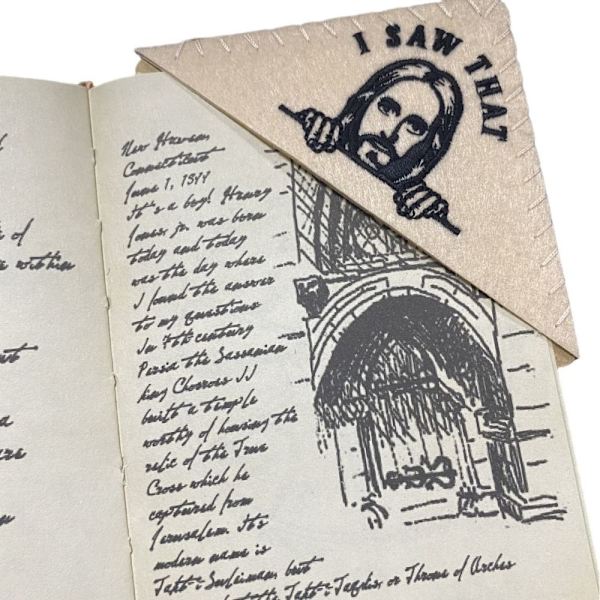 I SAW THAT
New Haven,
Connecticut
June 1, 1899
It's a boy! Henry
Jones, jr. was born
today and today
was the day where
I found the answer
to my questions
In 7th century
Persia the Sassanian
king Chosroes II
built a temple
worthy of housing the
relic of the True
Cross which he
captured from
Jerusalem. It's
modern name is
Takt-i Suleiman, but
Takt-i Taqdis, or Throne of Arches
of
within